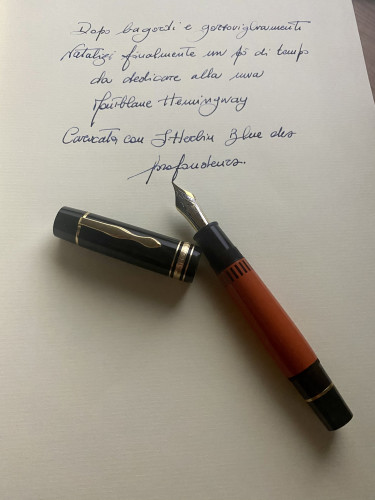 Dopo bagordi e gozzovigliamenti
Natalizi finalmente un pò di tempo
da dedicare alla mia
Montblanc Hemingway
Caricata con J Herbin Bleue des
profondeurs.